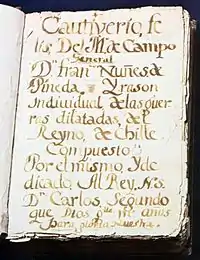 Cautiverio, fe
lis Del M. de Campo
General
Dn. fran.co Nuñes de
Pineda, Y rason
Indiuidual, de las gue
rras dilatadas, del
Reyno, de Chille
Compuesto
Por el mismo, Y de
dicado, Al Rey, N. S.
Dn. Carlos, Segundo
que Dios
para gloria Nuestra.